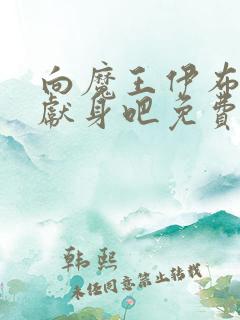 向魔王伊布
献身吧免費
韩熙
未经同意禁止转载